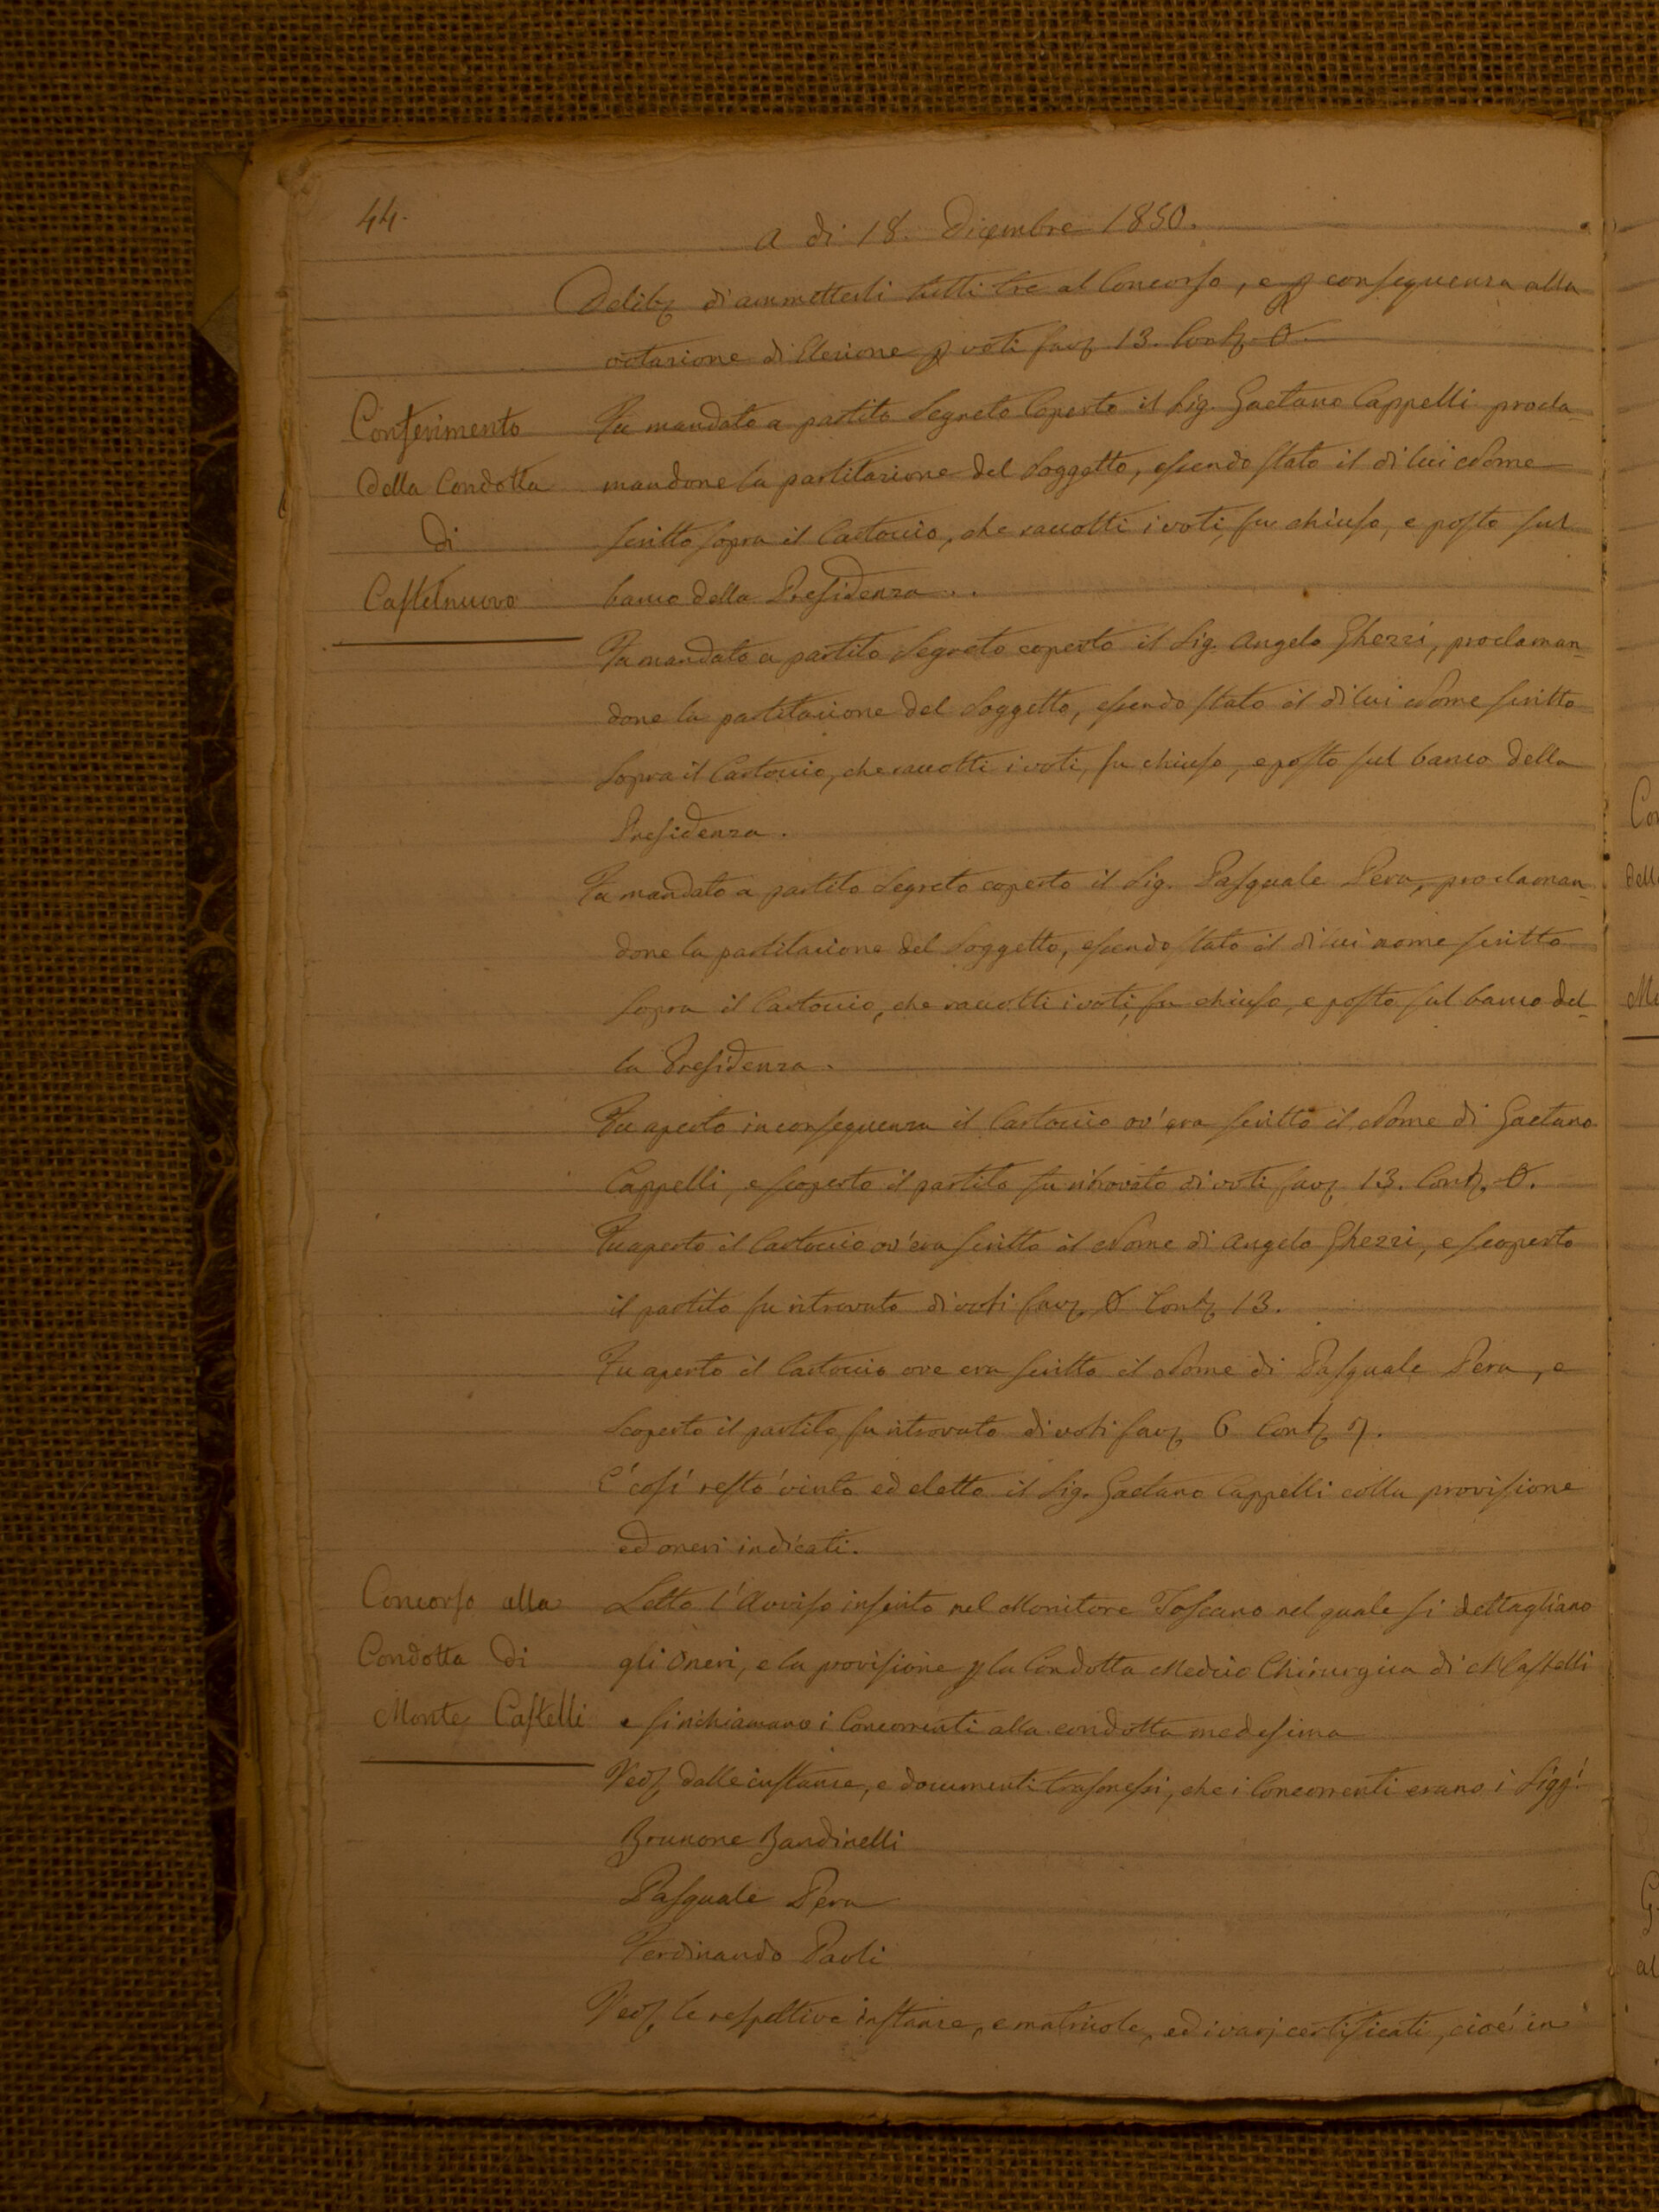 44.
A dì 18. Dicembre 1850.
Delib. di ammetterli tutti tre al Concorso, e p conseguenza alla
votazione di Elezione p voti fav. 13. Cont. 0.
Conferimento
della Condotta
di
Castelnuovo
Fu mandato a partito Segreto Coperto il Sig. Gaetano Cappelli procla-
mandone la partitazione del Soggetto, essendo stato il di lui Nome
scritto sopra il Cartoccio, che raccolti i voti, fu chiuso, e posto sul
banco della Presidenza..
Fu mandato a partito Segreto coperto il Sig. Angelo Ghezzi, proclaman-
done la partitazione del Soggetto, essendo stato il di lui Nome scritto
Sopra il Cartoccio, che raccolti i voti, fu chiuso, e posto sul banco della
Presidenza.
Fu mandato a partito Segreto coperto il Sig. Pasquale Pera, proclaman-
done la partitazione del Soggetto, essendo stato il di lui nome scritto
sopra il Cartoccio, che raccolti i voti, fu chiuso, e posto sul banco del-
la Presidenza.
Fu aperto in conseguenza il Cartoccio ov'era scritto il Nome di Gaetano
Cappelli, e scoperto il partito fu ritrovato di voti fav. 13. Cont. 0.
Fu aperto il Cartoccio ov'era scritto il Nome di Angelo Ghezzi, e scoperto
il partito fu ritrovato di voti fav. 0 Cont. 13.
Fu aperto il Cartoccio ove era scritto il Nome di Pasquale Pera, e
Scoperto il partito, fu ritrovato di voti fav. 6 Cont. 7.
E' così restò vinto ed eletto il Sig. Gaetano Cappelli colla provisione
ed oneri indicati.
Concorso alla
Condotta di
Monte Castelli
Letto l'Avviso inserito nel Monitore Toscano nel quale si dettagliano
gli Oneri, e la provisione p la Condotta Medico Chirurgica di M Castelli
e si richiamano i Concorrenti alla condotta medesima
Ved. dalle instanze, e documenti trasmessi, che i Concorrenti erano i Sigg.i
Brunone Bandinelli
Pasquale Pera
Ferdinando Paoli
Ved. le respettive instanze, e matricole, ed i varj certificati, cioè in